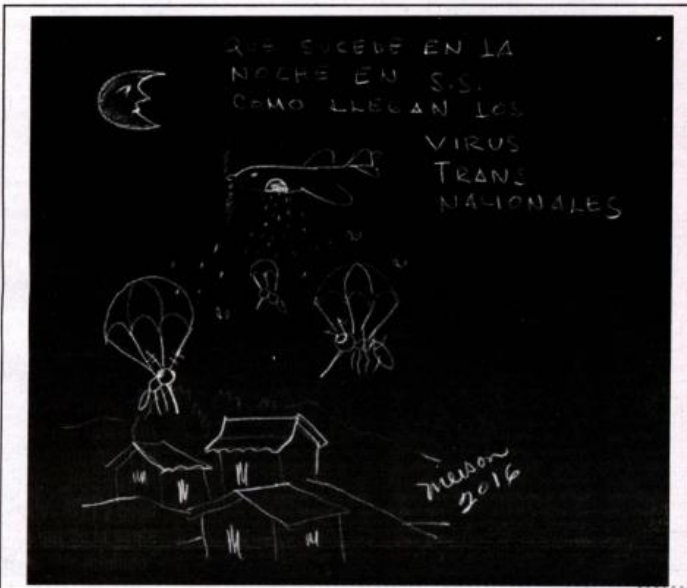 QUE SUCEDE EN LA
NOCHE EN S.S.
COMO LLEGAN LOS
VIRUS
TRANS
NACIONALES
2016